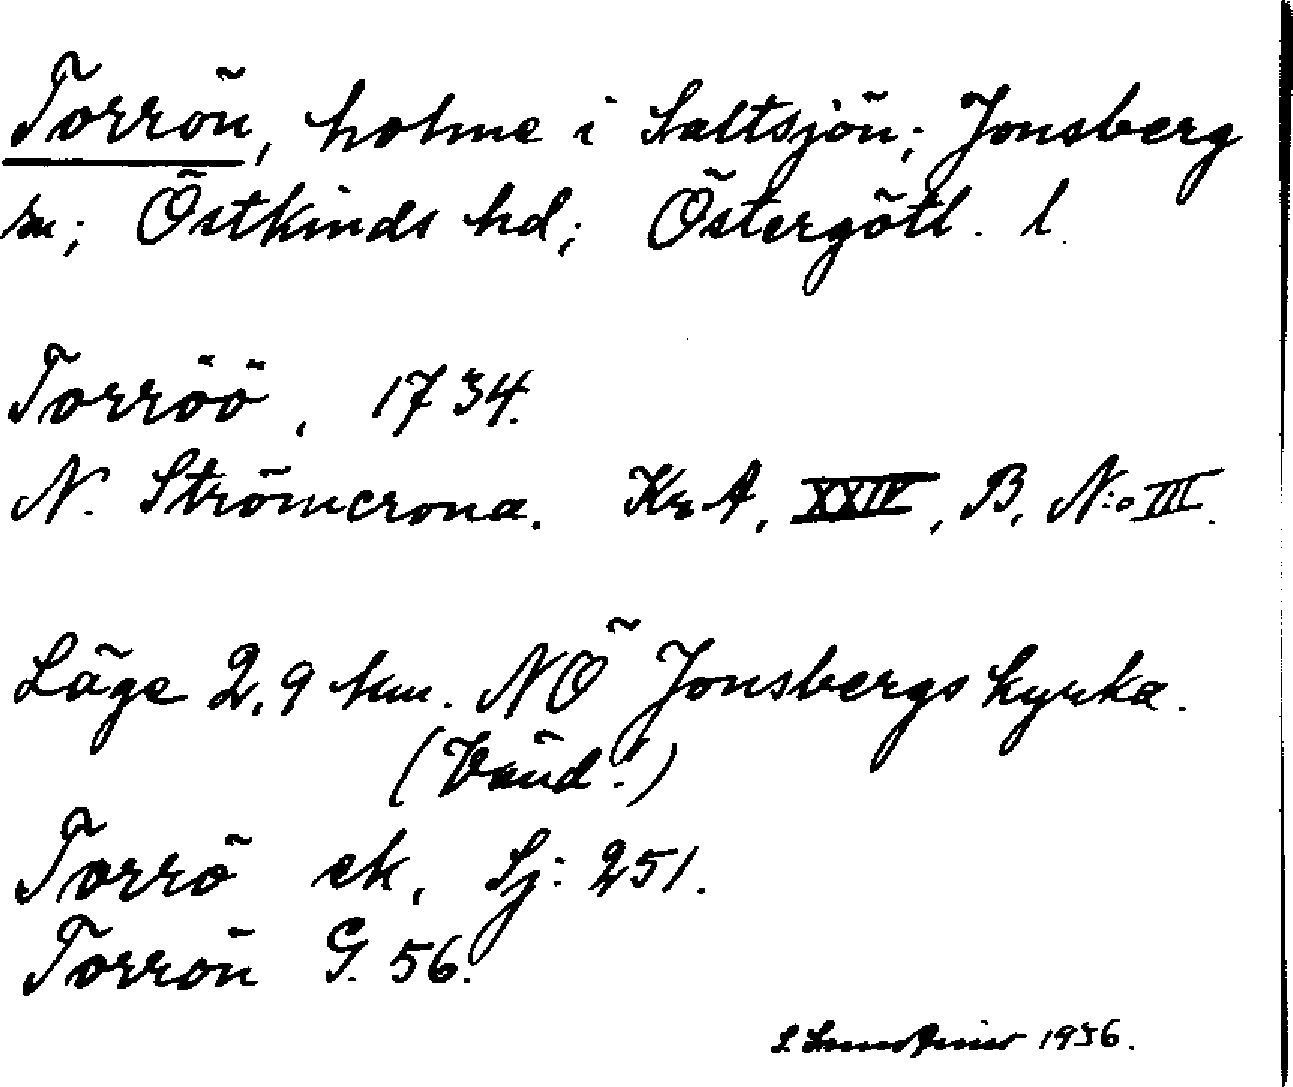 Torrön, holme i Saltsjön; Jonsberg
sn; Östkinds hd; Östergötl. l.
Torröö, 1734.
N. Strömcrona. Kr A, XXIV, B, N:o III.
Läge 2,9 km. NÖ Jonsbergs kyrka.
(Vänd!)
Torrö ek, Sj: 251.
Torrön G. 56.
1936.